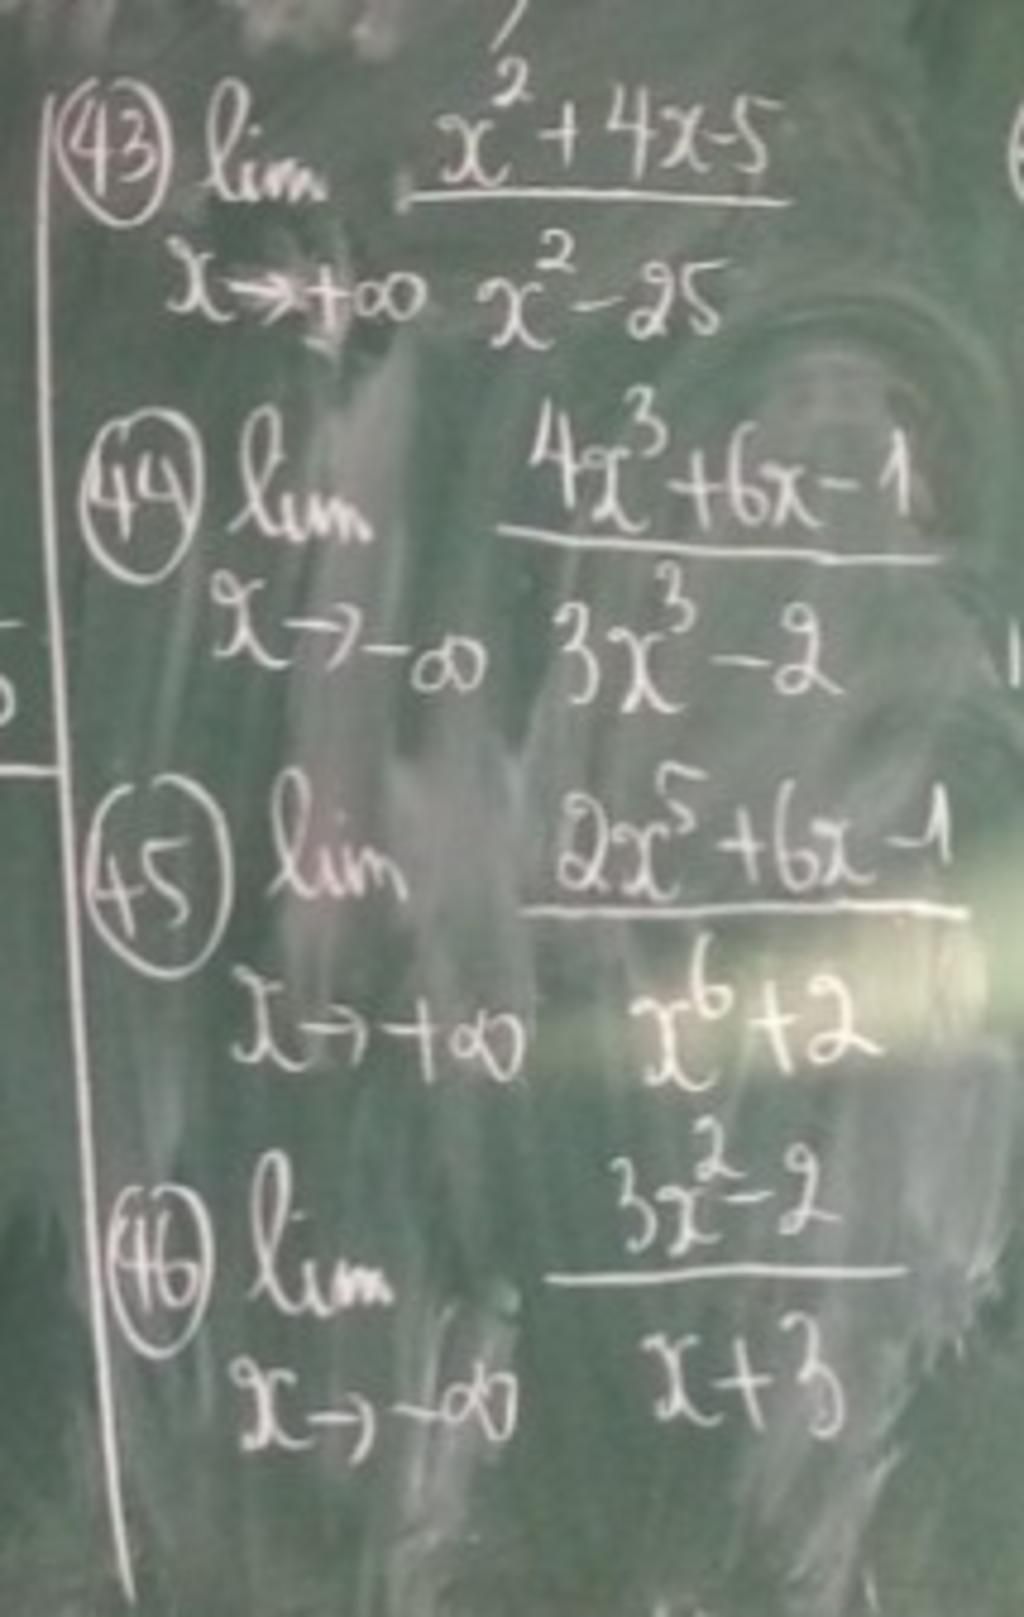 43 lim x²+4x-5
x→+∞ x²-25
44 lim 4x³+6x-1
x→-∞ 3x³-2
45 lim 2x⁵+6x-1
x→+∞ x⁶+2
46 lim 3x²-2
x→-∞ x+3